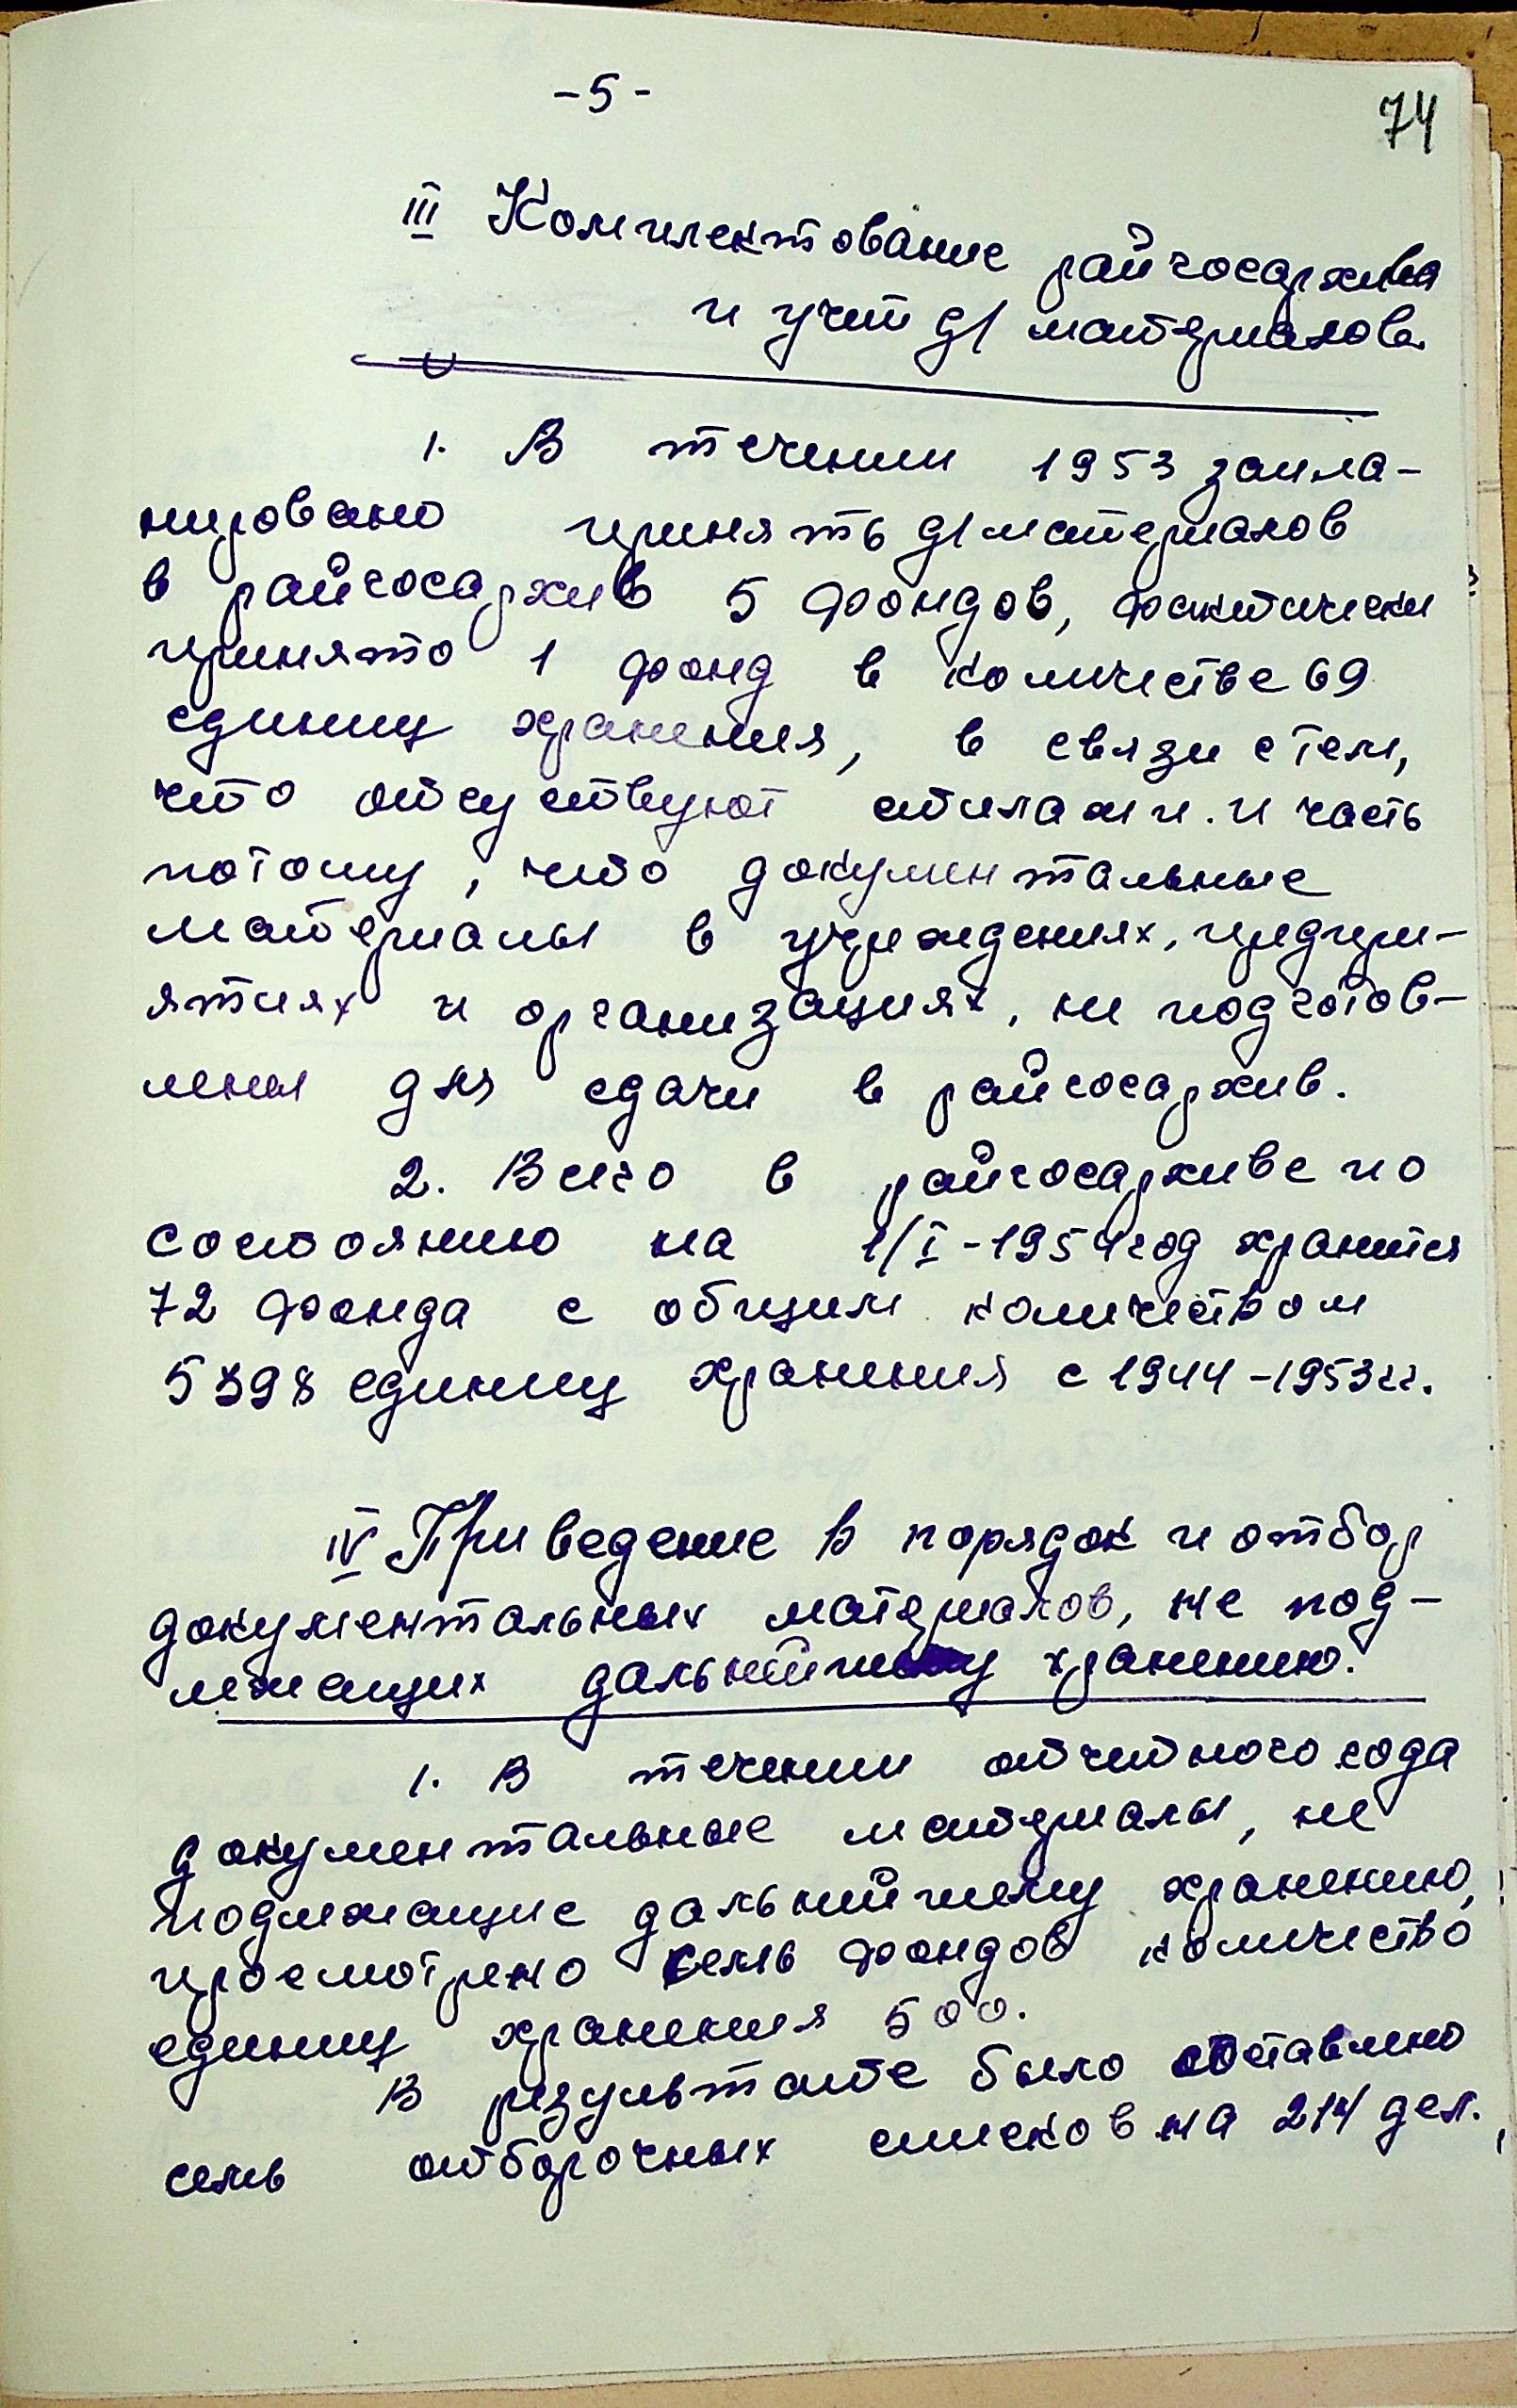 -5-
74
III Комплектование райгосархива
и учет д/ материалов.
1. В течении 1953 запла-
нировано принять д/материалов
в райгосархив 5 фондов, фактически
принято 1 фонд в количестве 69
единиц хранения, в связи с тем,
что отсуствуют стилажи. и часть
потому, что документальные
материалы в учреждениях, предпри-
ятиях и организациях, не подготов-
лены для сдачи в райгосархив.
2. Всего в райгосархиве по
состоянию на 1/I-1954 год хранится
72 фонда с общим количеством
5398 единиц хранения с 1944-1953 гг.
IV Приведение в порядок и отбор
документальных материалов, не под-
лежащих дальнейшему хранению.
1. В течении отчетного года
документальные материалы, не
подлежащие дальнейшему хранению,
просмотрено семь фондов количество
единиц хранения 500.
В результате было составлено
семь отборочных списков на 214 дел.,